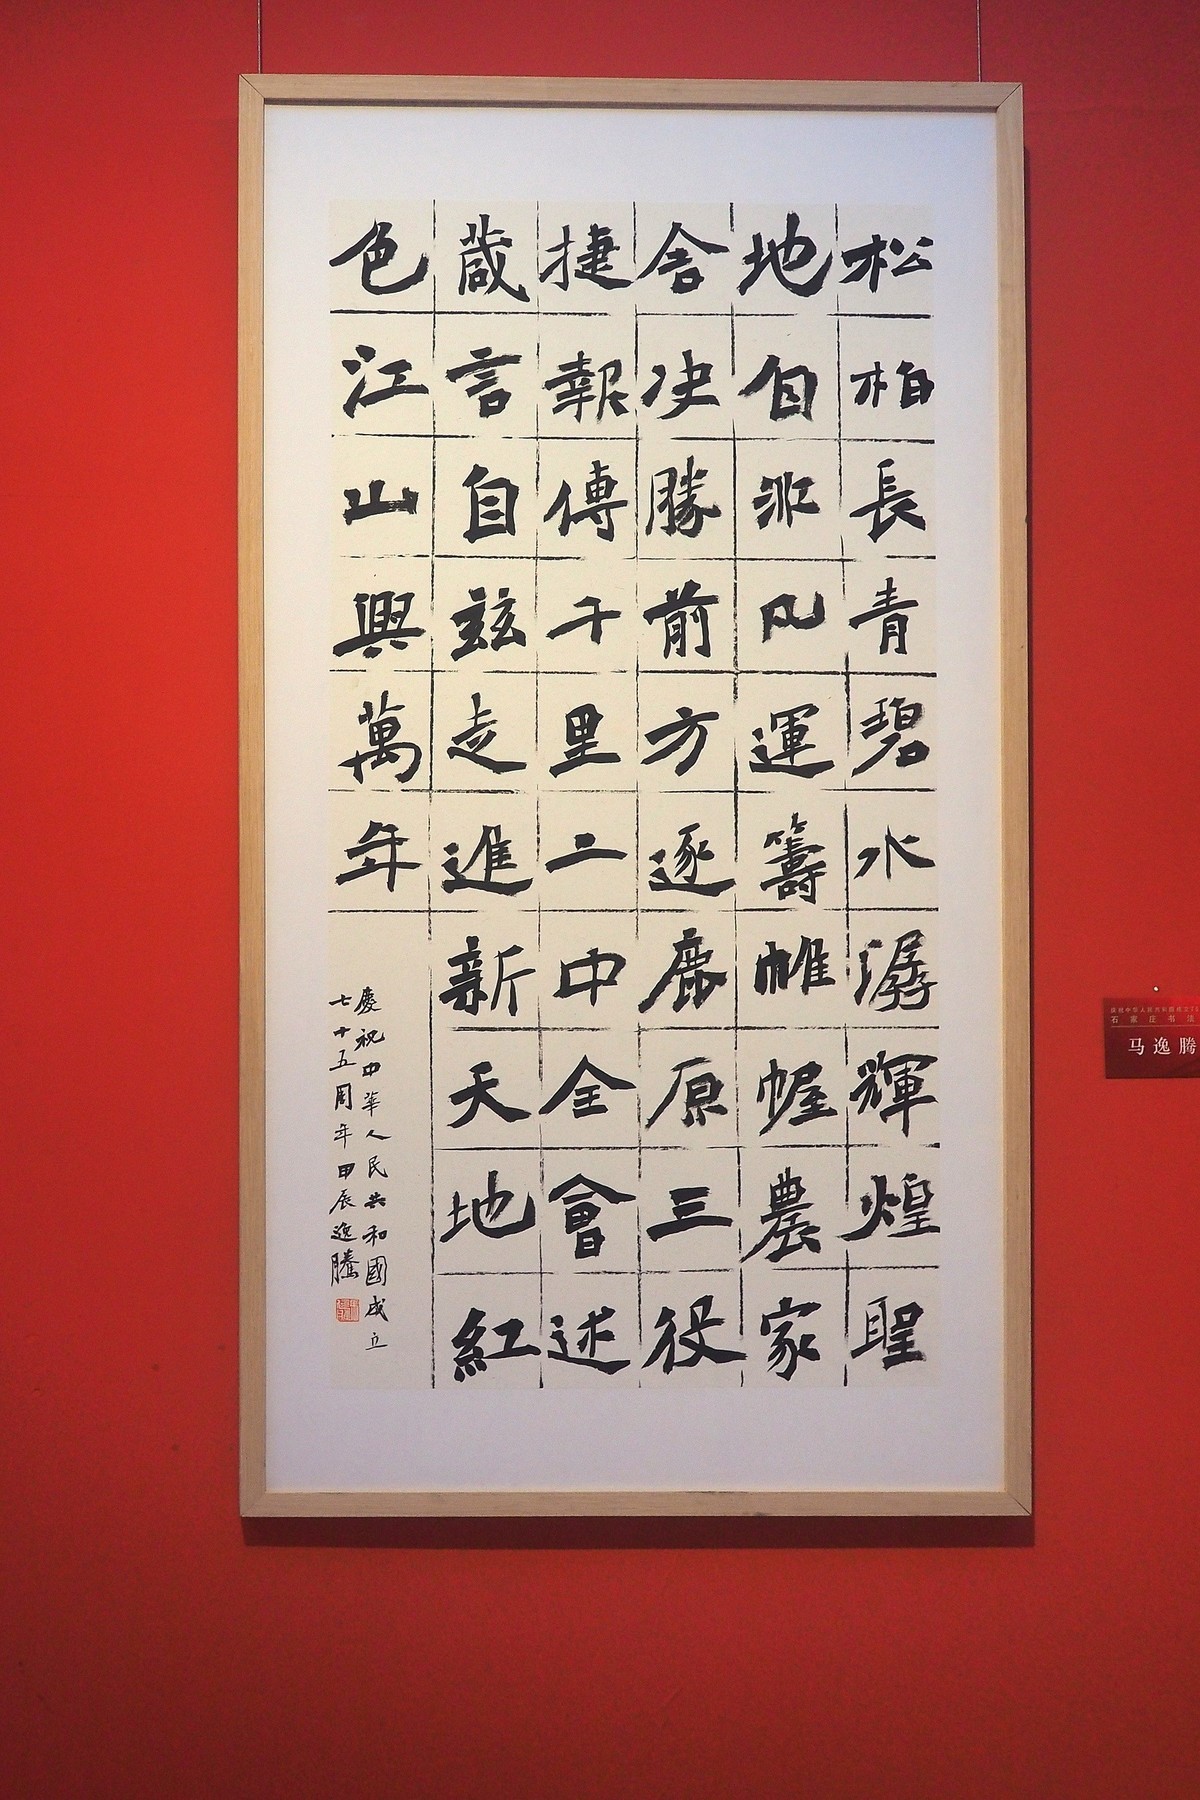 松柏長青碧水潺輝煌聖
地自非凡運籌帷幄農家
舍决勝前方逐鹿原三役
捷報傳千里二中全會述
蕆言自兹走進新天地紅
色江山興萬年
慶祝中華人民共和國成立
七十五周年甲辰逸騰
石家庄书法
马逸腾